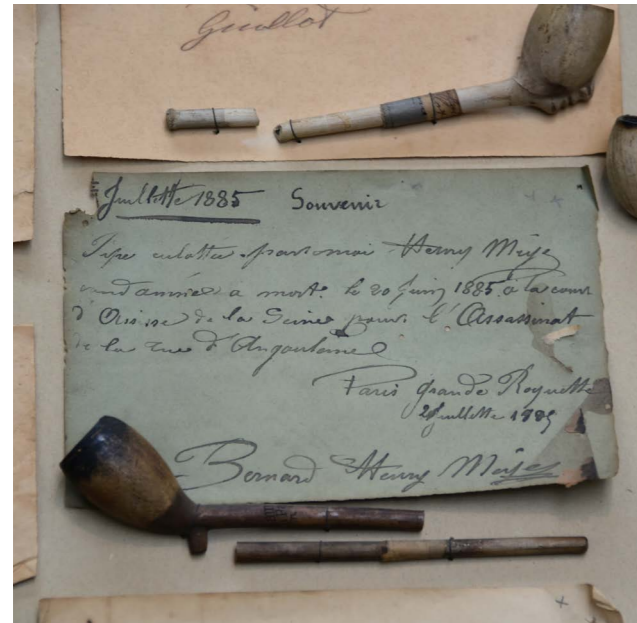 Guillot
Juillette 1885 Souvenir
Pipe culottée par moi Henry Meije
condamnée a mort. le 20 Juin 1885 à la cour
d'Assise de la Seine pour l'Assassinat
de la rue d'Angoulame
Paris grande Roquette
2 Juillette 1885
Bernard Henry Meije